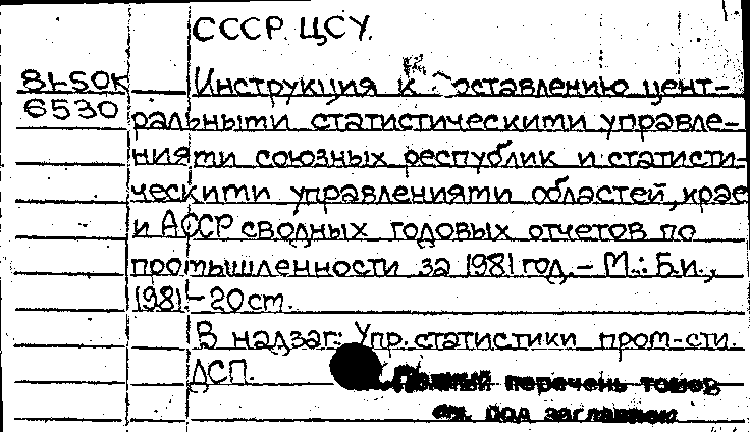 СССР. ЦСУ.
81-50к Инструкция к составлению цент-
6530 ральными статистическими управле-
ниями союзных республик и статисти-
ческими управлениями областей, крае
и АССР сводных годовых отчетов по
промышленности за 1981 год.- М.: Б.и.,
1981.- 20 ст.
В надзаг: Упр. статистики пром-сти.
ДСП.
Полный перечень томов
см. под заглавием